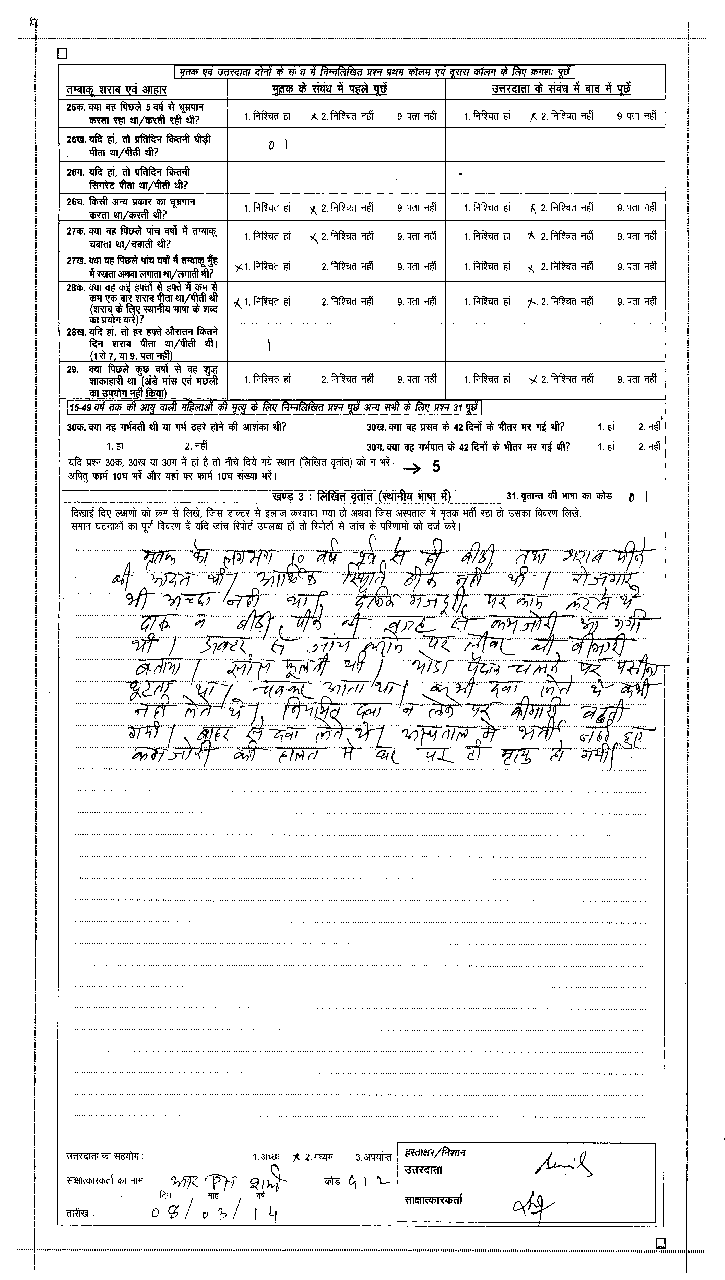 मृतक एवं उत्तरदाता दोनों के संबंध में निम्नलिखित प्रश्न प्रथम कॉलम एवं दूसरा कॉलम के लिए क्रमशः पूछें
तम्बाकू शराब एवं आहार मृतक के संबंध में पहले पूछें उत्तरदाता के संबंध में बाद में पूछें
25क. क्या वह पिछले 5 वर्ष से धूम्रपान करता रहा था/करती रही थी? 1. निश्चित हां x 2. निश्चित नहीं 9. पता नहीं 1. निश्चित हां x 2. निश्चित नहीं 9. पता नहीं
25ख. यदि हां, तो प्रतिदिन कितनी बीड़ी पीता था/पीती थी? 0 1
25ग. यदि हां, तो प्रतिदिन कितनी सिगरेट पीता था/पीती थी? -
26घ. किसी अन्य प्रकार का धूम्रपान करता था/करती थी? 1. निश्चित हां x 2. निश्चित नहीं 9. पता नहीं 1. निश्चित हां x 2. निश्चित नहीं 9. पता नहीं
27क. क्या वह पिछले पांच वर्षों में तम्बाकू चबाता था/चबाती थी? 1. निश्चित हां x 2. निश्चित नहीं 9. पता नहीं 1. निश्चित हां x 2. निश्चित नहीं 9. पता नहीं
27ख. क्या वह पिछले पांच वर्षों में तम्बाकू मुँह में रखता अथवा लगाता था/लगाती थी? x 1. निश्चित हां 2. निश्चित नहीं 9. पता नहीं 1. निश्चित हां x 2. निश्चित नहीं 9. पता नहीं
28क. क्या वह कई हफ्तों से हफ्ते में कम से कम एक बार शराब पीता था/पीती थी (शराब के लिए स्थानीय भाषा के शब्द का प्रयोग करें)? x 1. निश्चित हां 2. निश्चित नहीं 9. पता नहीं 1. निश्चित हां x 2. निश्चित नहीं 9. पता नहीं
28ख. यदि हां, तो हर हफ्ते औसतन कितने दिन शराब पीता था/पीती थी। (1 से 7, या 9. पता नहीं) 1
29. क्या पिछले कुछ वर्षों से वह शुद्ध शाकाहारी था (अंडे मांस एवं मछली का उपयोग नहीं किया) 1. निश्चित हां 2. निश्चित नहीं 9. पता नहीं 1. निश्चित हां x 2. निश्चित नहीं 9. पता नहीं
15-49 वर्ष तक की आयु वाली महिलाओं की मृत्यु के लिए निम्नलिखित प्रश्न पूछें अन्य सभी के लिए प्रश्न 31 पूछें
30क. क्या वह गर्भवती थी या गर्भ ठहरे होने की आशंका थी? 30ख. क्या वह प्रसव के 42 दिनों के भीतर मर गई थी? 1. हां 2. नहीं
1. हां 2. नहीं 30ग. क्या वह गर्भपात के 42 दिनों के भीतर मर गई थी? 1. हां 2. नहीं
यदि प्रश्न 30क, 30ख या 30ग में हां है तो नीचे दिये गये स्थान (लिखित वृतांत) को न भरें
अपितु फार्म 10घ भरें और यहां पर फार्म 10घ संख्या भरें। → 5
खण्ड 3 : लिखित वृतांत (स्थानीय भाषा में) 31. वृतान्त की भाषा का कोड 0 1
दिखाई दिए लक्षणों को क्रम से लिखें, जिस डाक्टर से इलाज करवाया गया हो अथवा जिस अस्पताल में मृतक भर्ती रहा हो उसका विवरण लिखें.
समान घटनाओं का पूर्ण विवरण दें यदि जांच रिपोर्ट उपलब्ध हों तो रिपोर्टों से जांच के परिणामों को दर्ज करें।
मृतक को लगभग 10 वर्ष पूर्व से ही बीडी तथा शराब पीने
की आदत थी। आर्थिक स्थिति ठीक नही थी। रोजगार
भी अच्छा नही था। दैनिक मजदूरी पर काम करते थे
दारू व बीडी पीने की वजह से कमजोरी आ गयी
थी। डाक्टर से जांच कराने पर लीवर की बीमारी
बताया। सांस फूलती थी। थोडा पैदल चलने पर पसीना
छूटता था। चक्कर आता था। कभी दवा लेते थे कभी
नही लेते थे। नियमित दवा न लेने पर बीमारी बढती
गयी। बाहर से दवा लेते थे। अस्पताल मे भर्ती नही हुए
कमजोरी की हालत मे घर पर ही मृत्यु हो गयी।
उत्तरदाता का सहयोग : 1. अच्छा x 2. मध्यम 3. अपर्याप्त हस्ताक्षर/निशान
उत्तरदाता
साक्षात्कारकर्ता का नाम आर कोड 912
दिन माह वर्ष साक्षात्कारकर्ता
तारीख : 08/03/14